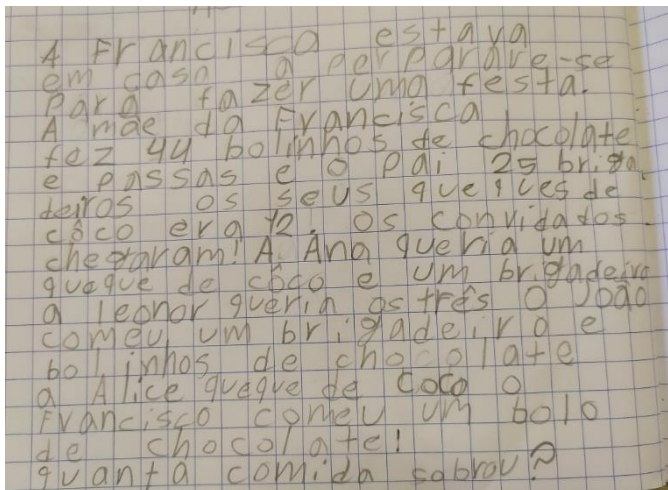 A Francisca estava
em casa a perparare-se
para fazer uma festa.
A mãe da Francisca
fez 44 bolinhos de chocolate
e passas e o pai 25 briga
deiros os seus queques de
côco era 12. os convidados
chegaram! A Ana queria um
queque de côco e um brigadeiro
a leonor queria os três O João
comeu um brigadeiro e
bolinhos de chocolate
a Alice queque de coco O
Francisco comeu um bolo
de chocolate!
quanta comida sobrou?